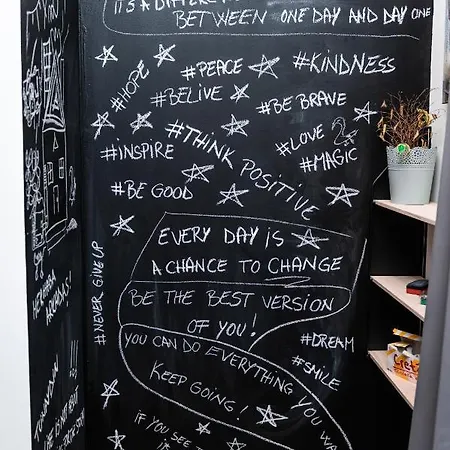 IT'S A DIFFERE
BETWEEN ONE DAY AND DAY ONE
#HOPE
#PEACE
#KINDNESS
#BELIVE
#BE BRAVE
#THINK POSITIVE
#LOVE
#INSPIRE
#MAGIC
#BE GOOD
EVERY DAY IS
A CHANCE TO CHANGE
#NEVER GIVE UP
BE THE BEST VERSION
OF YOU!
#DREAM
YOU CAN DO EVERYTHING YOU WA
#SMILE
KEEP GOING!
IF YOU SEE
LIFE IS NOT